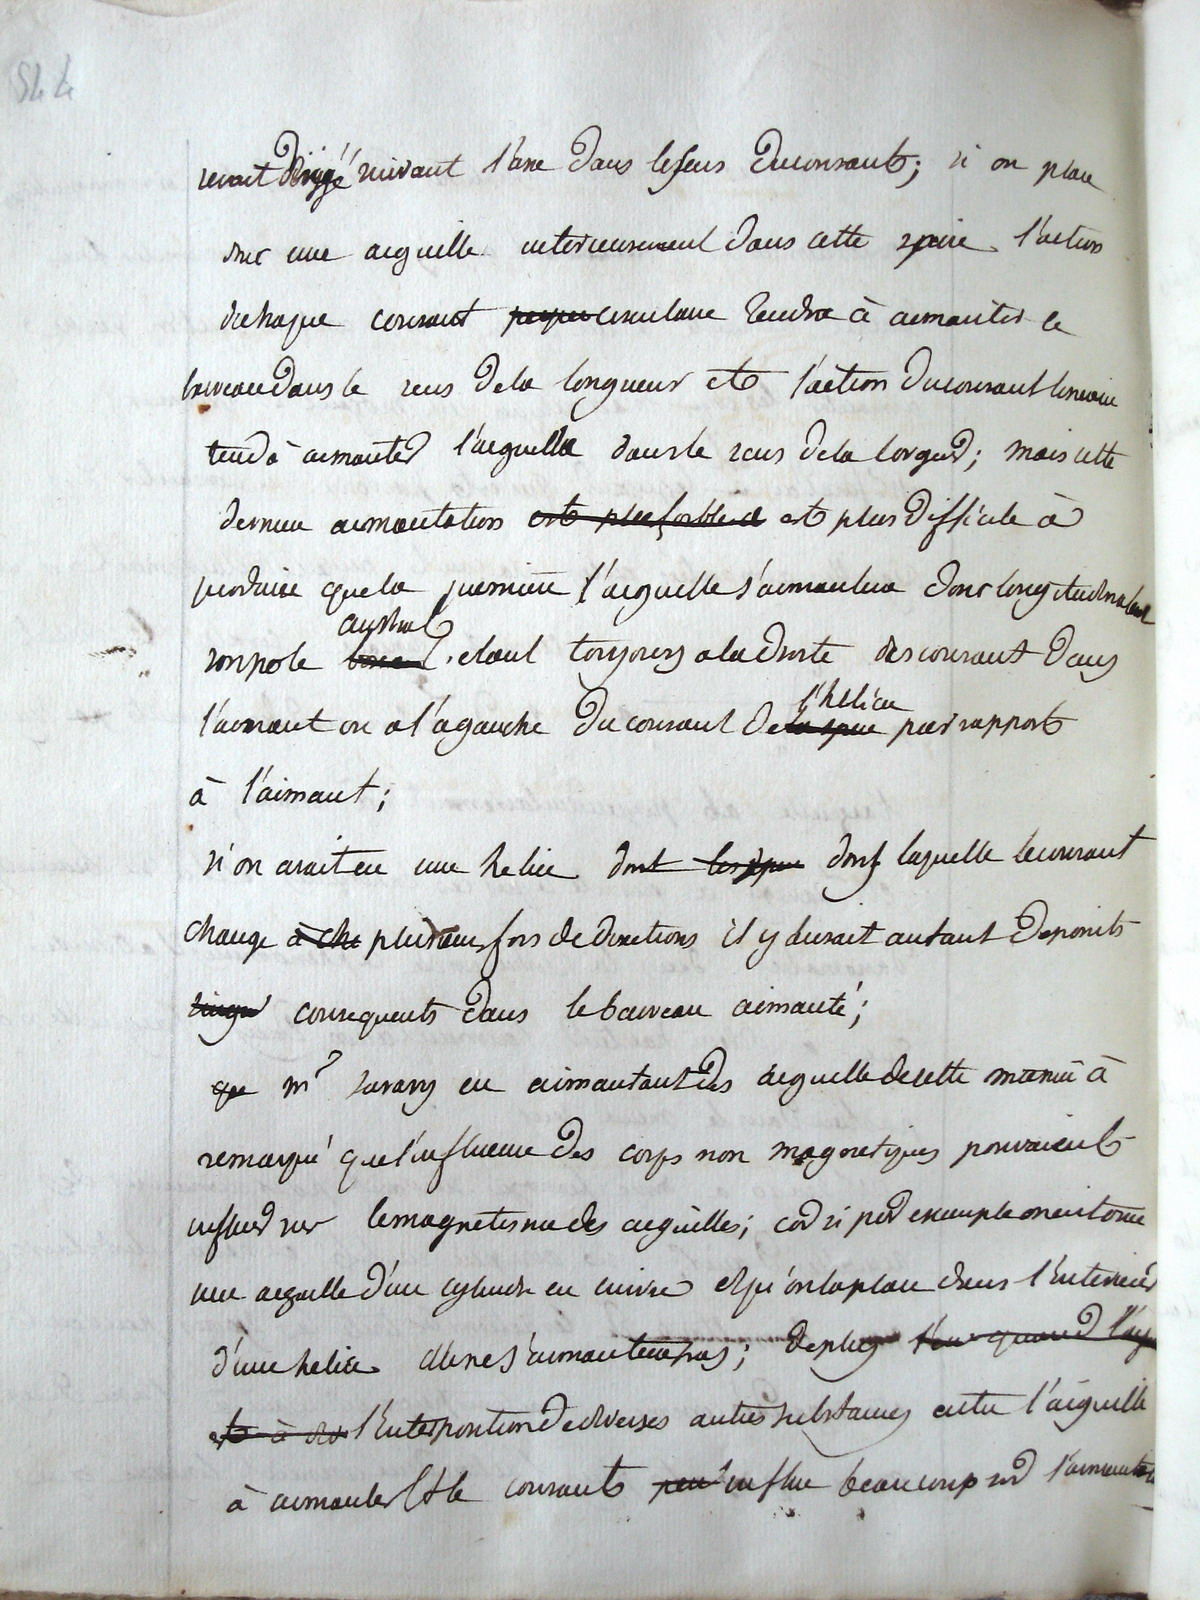 serait dirigé suivant l'axe dans le sens du courant; si on place
donc une aiguille interieurement dans cette spire l'action
de chaque courant circulaire tendra à aimanter le
barreau dans le sens de la longueur et l'action du courant lineaire
tend à aimanter l'aiguille dans le sens de la largeur; mais cette
derniere aimantation est plus faible et est plus difficile à
produire que la premiere l'aiguille s'aimantera donc longitudinalement
austral
son pole boreal etant toujours a la droite des courant dans
l'helice
l'aimant ou a l'agauche du courant de la spire par rapport
à l'aimant;
si on avait eu une helice dont les spire dans laquelle le courant
change à cha plusieurs fois de directions il y aurait autant de points
consequents dans le barreau aimanté;
que mr savary en aimantant des aiguille de cette maniere à
remarqué que l'influence des corps non magnetiques pouvaient
influer sur le magnetisme des aiguilles; car si par exemple on entoure
une aiguille d'un cylindre en cuivre et qu'on la place dans l'interieur
d'une helice elle ne s'aimantera pas; de plus quand l'aig
et à l'interposition de diverses autres substances entre l'aiguille
à aimanter et le courants peu influe beaucoup sur l'aimantation